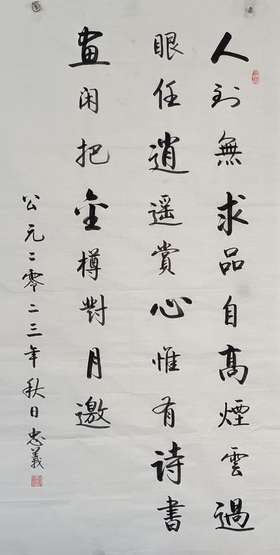 人到無求品自高煙雲過
眼任逍遥賞心惟有詩書
畫閑把金樽對月邀
公元二零二三年秋日忠義